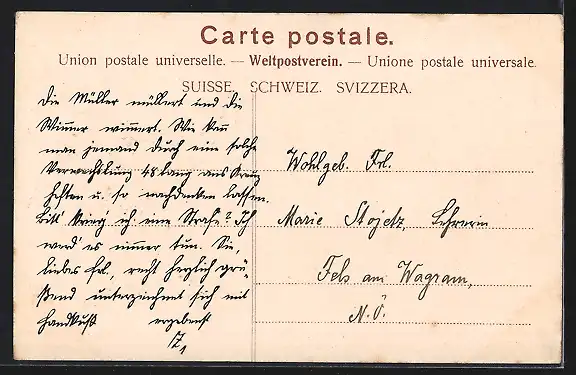 Carte postale.
Union postale universelle. — Weltpostverein. — Unione postale universale.
SUISSE. SCHWEIZ. SVIZZERA.
Die Müller müllert und die
Wimmer wimmert. Wie kann
man jemand durch eine solche
Verwechslung 48 lang aus
u. so nachdenken lassen.
Bitt' krieg' ich eine Strafe? Ich
werd' es nimmer tun. Sie,
liebes Frl., recht herzlich grü-
ßend unterzeichnet sich mit
Handkuß ergebenst
Wohlgeb. Frl.
Marie Stojetz, Lehrerin
Fels am Wagram,
N.Ö.